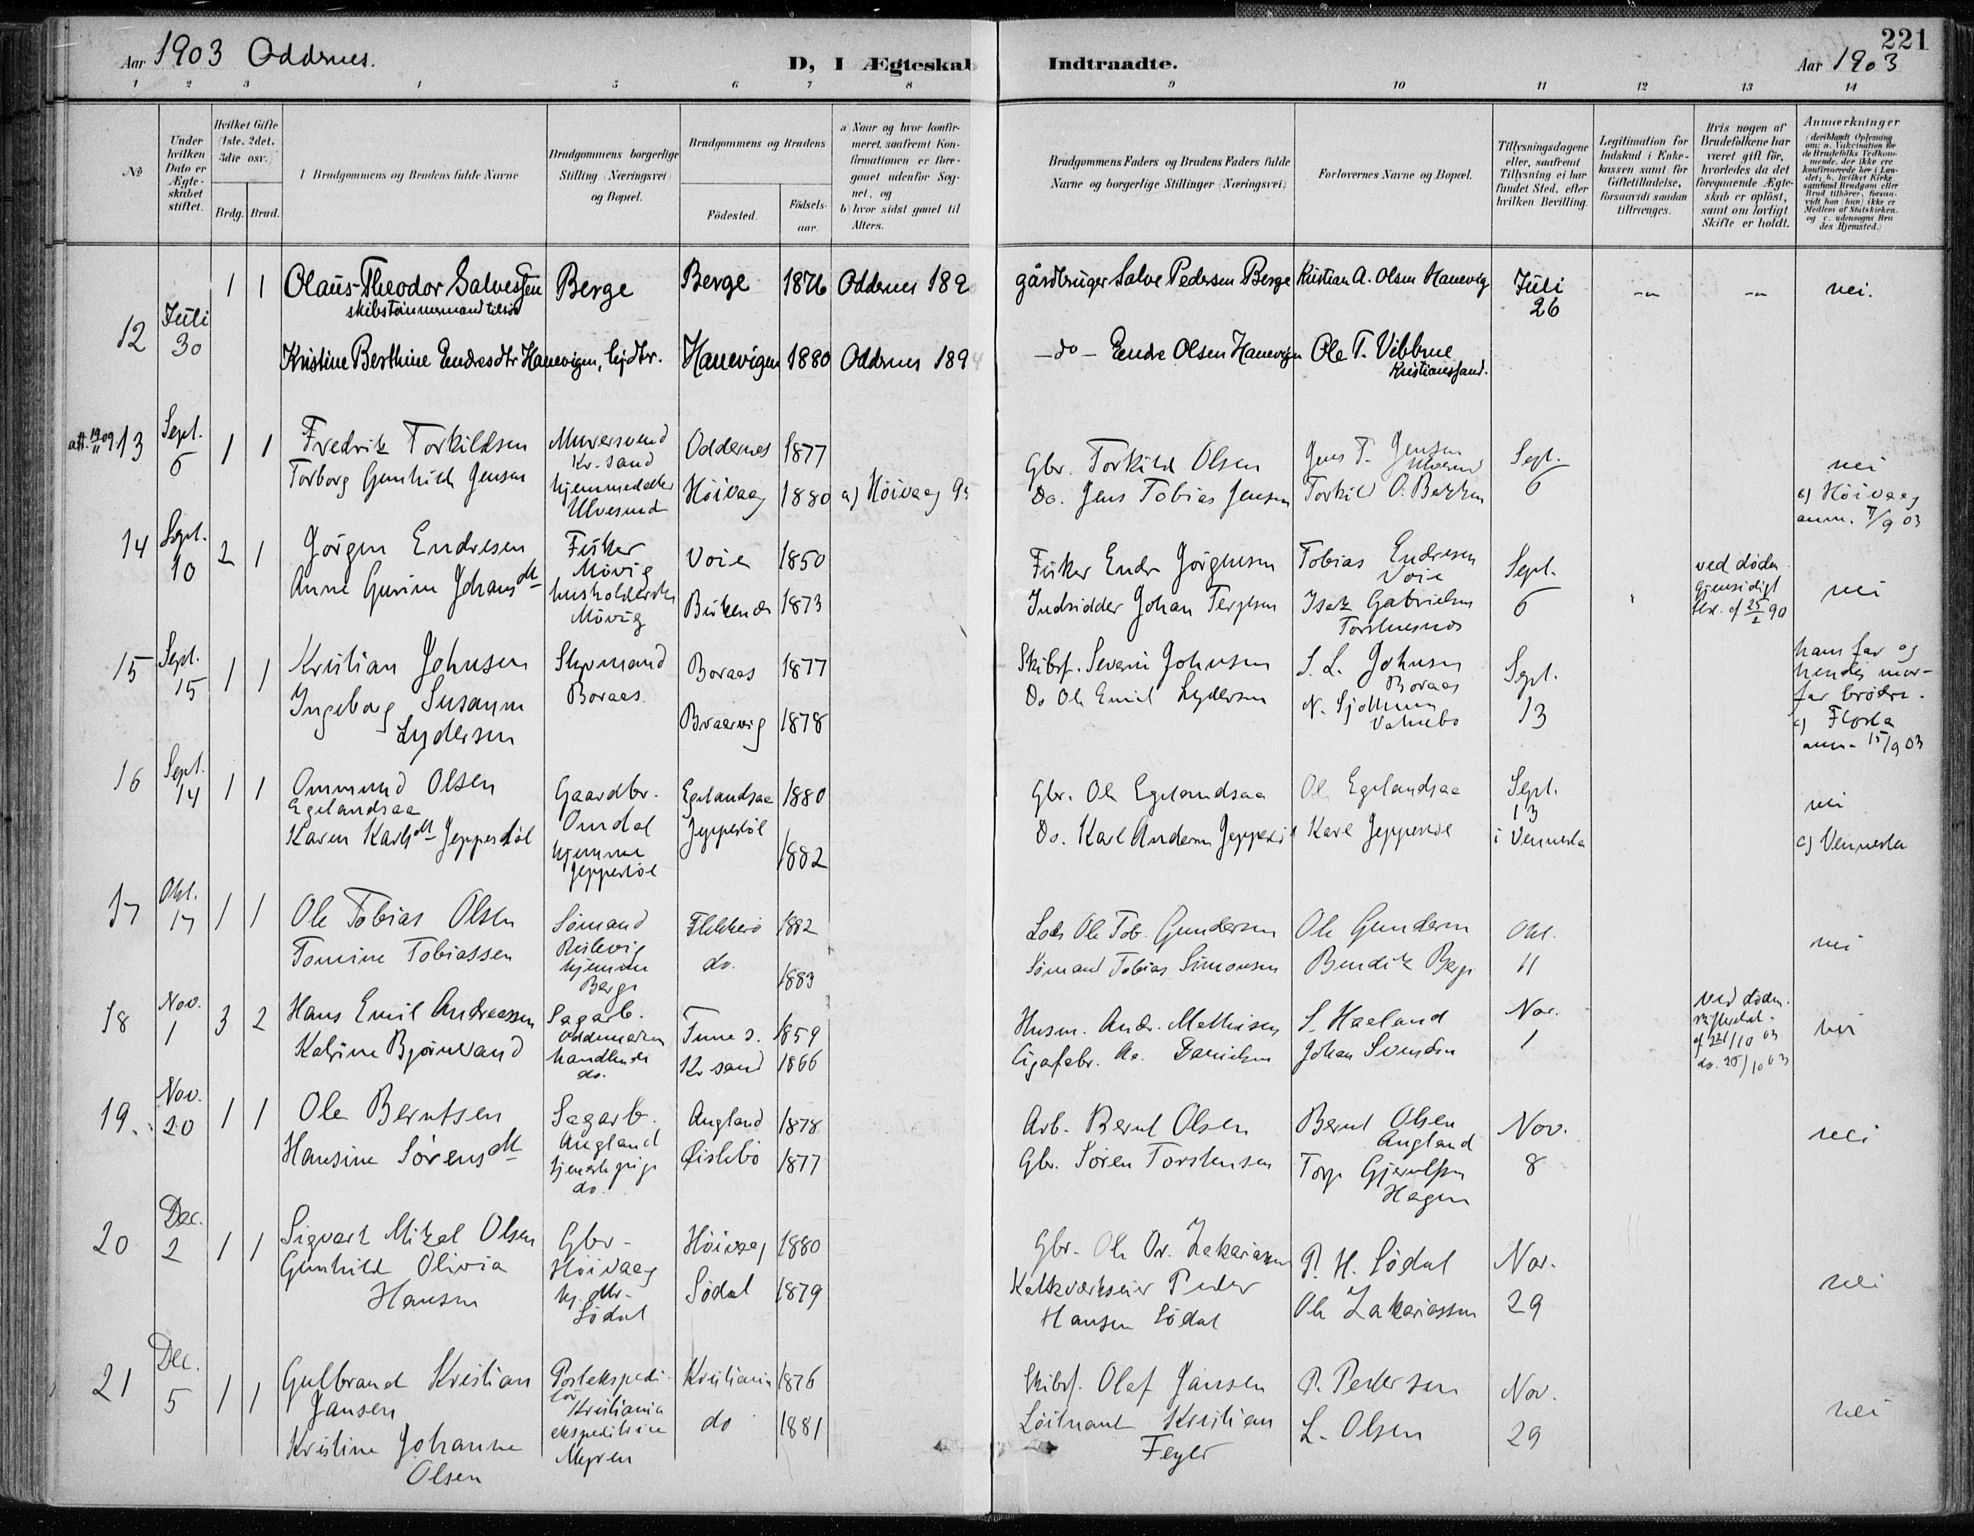 221
Aar 1903 Oddernes.
D, I Ægteskab Indtraadte.
Aar 1903
1 2 3 4 5 6 7 8 9 10 11 12 13 14
№
Under hvilken Dato er Ægteskabet stiftet.
Hvilket Gifte (1ste. 2det. 3die osv.)
Brdg. Brud.
Brudgommens og Brudens fulde Navne
Brudgommens borgerlige Stilling (Næringsvei) og Bopæl.
Brudgommens og Brudens
Födested.
Födselsaar.
a) Naar og hvor konfirmeret, saafremt Konfirmationen er foregaaet udenfor Sognet, og
b) hvor sidst gaaet til Alters.
Brudgommens Faders og Brudens Faders fulde Navne og borgerlige Stillinger (Næringsvei)
Forlovernes Navne og Bopæl.
Tillysningsdagene eller, saafremt Tillysning ei har fundet Sted, efter hvilken Bevilling
Legitimation for Indskud i Enkekassen samt for Giftetilladelse, forsaavidt saadan tiltrænges.
Hvis nogen af Brudefolkene har været gift før, hvorledes da det foregaaende Ægteskab er oplöst, samt om lovligt Skifte er holdt.
Anmærkninger
12 Juli 30 1 1 Olaus Theodor Salvesen Berge Berge 1876 Oddernes 189
skibstømmermand tilsøs
gårdbruger Salve Pedersen Berge Kristian A. Olsen Hanevig Juli 26 nei.
Kristine Berthine Endresdtr Hanevigen, hjdtr. Hanevigen 1880 Oddernes 189
-do- Endre Olsen Hanevigen Ole T. Vibbne
Kristianssand.
13 Sept. 6 1 1 Fredrik Torkildsen Murersvend Kr.sand Oddernes 1877
Gbr. Torkild Olsen Jens T. Jensen Ulvesund Sept. 6 nei
Torborg Gunhild Jensen hjemmedatter Ulvesund Höivaag 1880 a) Höivaag 9
Do. Jens Tobias Jensen Torkil O. Bakken
c) Höivaag
anm. 7/9 03
14 Sept. 10 2 1 Jörgen Endresen Fisker Mövig Voie 1850
Fisker Endr Jörgensen Tobias Endresen Voie Sept. 6
ved døden
Gjensidigt
25/2 90
nei
Anne Gurine Johansdt husholderske Mövig 1873
Indsidder Johan Terjesen Isak Gabrielsen
15 Sept. 15 1 1 Kristian Johnsen Styrmand Boraas Boraas 1877
Skibsf. Severin Johnsen S. L. Johnsen Boraas Sept. 13
hans far og
hendes mor-
far brödre.
c) Flosta
anm. 15/9 03
Ingeborg Susanne Lydersen 1878
Do Ole Emil Lydersen
16 Sept. 14 1 1 Ommund Olsen Egelandsaa Gaardbr. Omdal Egelandsaa 1880
Gbr. Ole Egelandsaa Ole Egelandsaa Sept. 13 i Vennesla nei
Karen Karlsdt Jeppestøl hjemme Jeppestøl Jeppestøl 1882
Do. Karl Andersen Jeppestøl Karl Jeppestøl
c) Vennesla
17 Okt. 17 1 1 Ole Tobias Olsen Sömand Flekkerö 1882
Lods Ole Tob. Gundersen Ole Gundersen Okt. 11 nei
Tomine Tobiassen hjemme Berge do. 1883
Sömand Tobias Simonsen Bendik Berge
18 Nov. 1 3 2 Hans Emil Andreassen Sagarb. Tune s. 1859
Husm. Andr. Mathisen S. Haaland Nov. 1
ved døden.
nei
Katrine Bjørnvand handlende do. Kr sand 1866
Cigarfabr. Danielsen Johan Svendsen
19. Nov. 20 1 1 Ole Berntsen Sagarb. Augland Augland 1878
Arb. Bernt Olsen Bernt Olsen Augland Nov. 8 nei
Hansine Sörensdt tjenestepige do. Øislebö 1877
Gbr. Sören Torstensen Torje Gjerulfsen Hagen
20 Dec. 2 1 1 Sigvart Mikal Olsen Gbr. Höivaag Höivaag 1880
Gbr. Ole Zakariassen P. H. Södal Nov. 29 nei
Gunhild Olivia Hansen hj. dtr. Södal Södal 1879
Kalkværkseier Peder Hansen Södal Ole Zakariassen
21 Dec. 5 1 1 Gulbrand Kristian Jansen Postekspeditör Kristiania Kristiania 1876
Skibsf. Olaf Jansen P. Pedersen Nov. 29 nei
Kristine Johanne Olsen ekspeditrice Myren do 1881
Löitnant Kristian L. Olsen